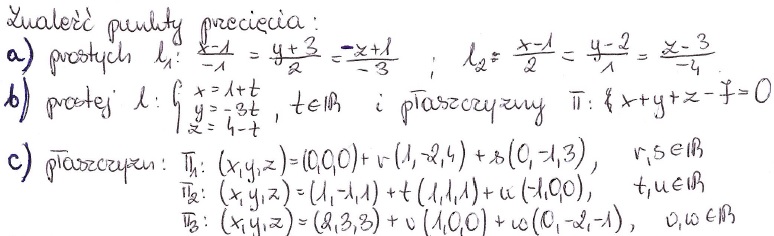 Znaleźć punkty przecięcia:
a) prostych l₁: (x-1)/(-1) = (y+3)/2 = (-z+1)/(-3) ; l₂: (x-1)/2 = (y-2)/1 = (z-3)/(-4)
b) prostej l: { x = 1+t
y = -3t , t∈ℝ i płaszczyzny π: x+y+z-7=0
z = 4-t
c) płaszczyzn: π₁: (x,y,z)=(0,0,0)+r(1,-2,4)+s(0,-1,3), r,s∈ℝ
π₂: (x,y,z)=(1,-1,1)+t(1,1,1)+u(-1,0,0), t,u∈ℝ
π₃: (x,y,z)=(2,3,3)+v(1,0,0)+w(0,-2,-1), v,w∈ℝ